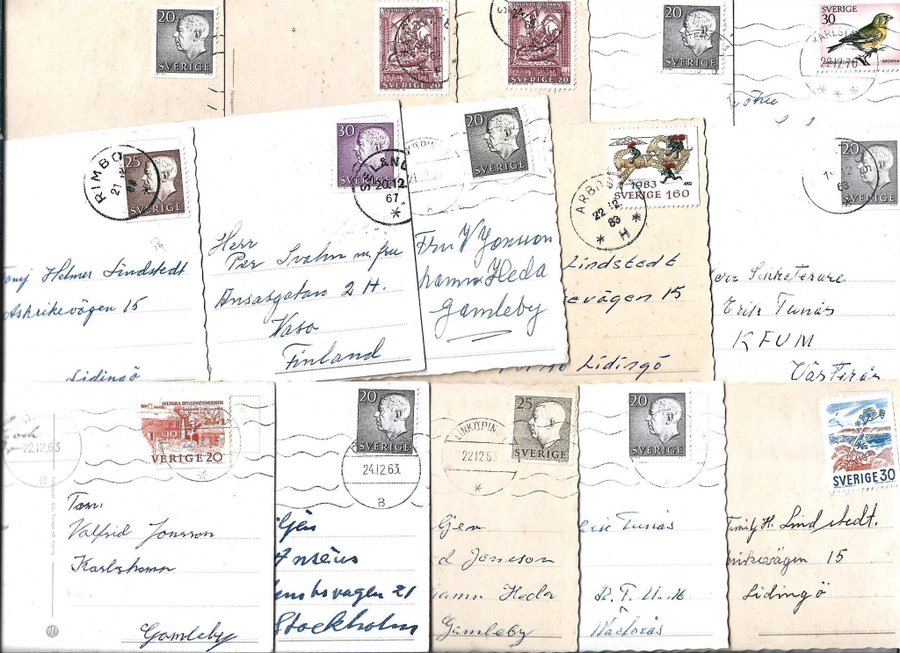 20
SVERIGE
SVERIGE 20
SVERIGE 20
20
SVERIGE
SVERIGE
30
22.12.70
RIMBO
21
25
SVERIGE
Helmer Lindstedt
15
Lidingö
30
SVERIGE
20.12.
67
Herr
Per Svahn m. fru
Ansasgatan 2 H.
Vasa
Finland
20
SVERIGE
Fru V Jonsson
Heda
Gamleby
1983
SVERIGE 160
ARBOGA
22 12
83
H
Lindstedt
15
Lidingö
20
SVERIGE
63
Sekreterare
Erik Tunås
KFUM
Västerås
22.12.63
SVERIGE 20
Fam.
Valfrid Jonsson
Karlshamn
Gamleby
20
SVERIGE
24.12.63.
B
21
Stockholm
LINKÖPING
22.12.63
25
SVERIGE
Jonsson
Heda
Gamleby
20
SVERIGE
Eric Tunås
K.F.U.M
Västerås
SVERIGE 30
Family H. Lindstedt.
15
Lidingö